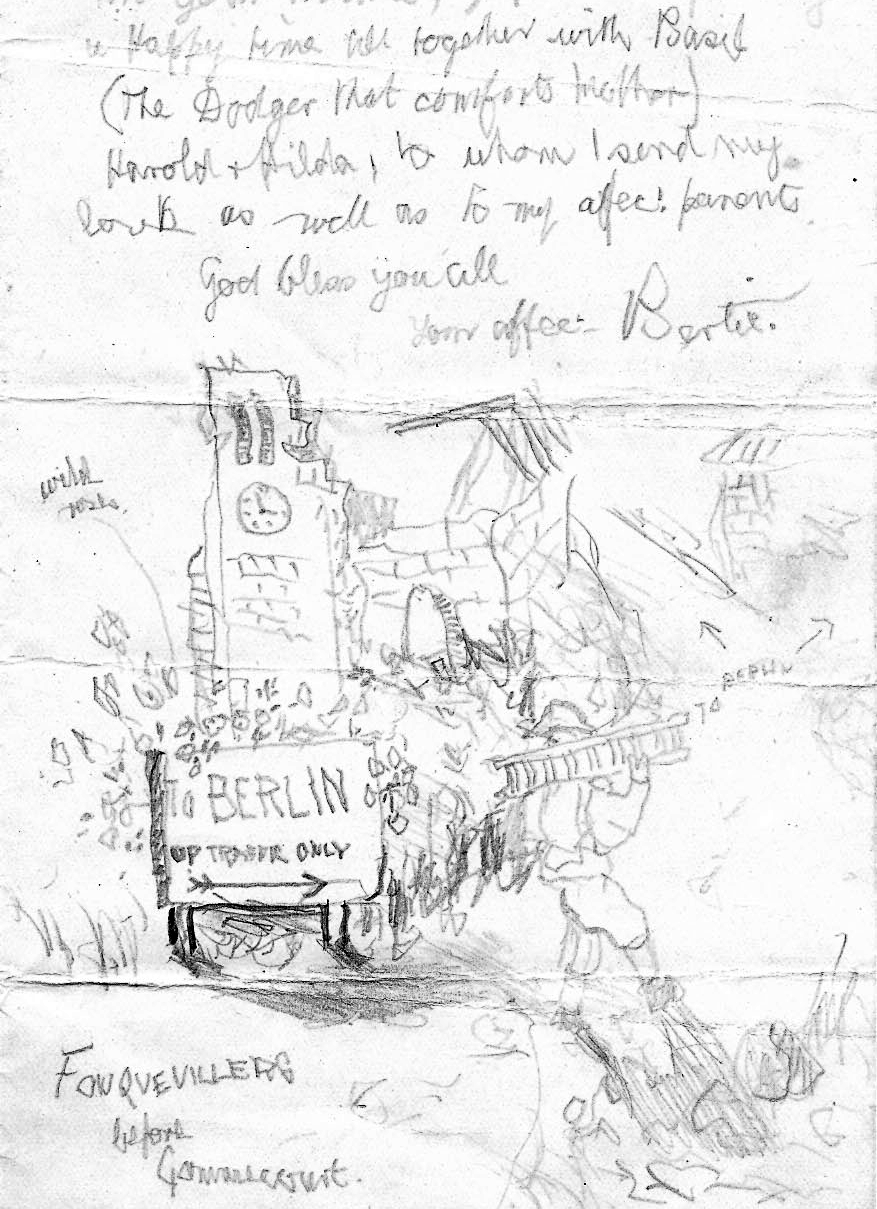 a Happy time all together with Basil
(The Dodger that comforts Mother)
Harold & Hilda, to whom I send my
love as well as to my affec! parents.
God bless you all
Your affec:- Bertie.
wild
rose
TO
To BERLIN
UP ONLY
FONQUEVILLERS
before
Gommecourt.